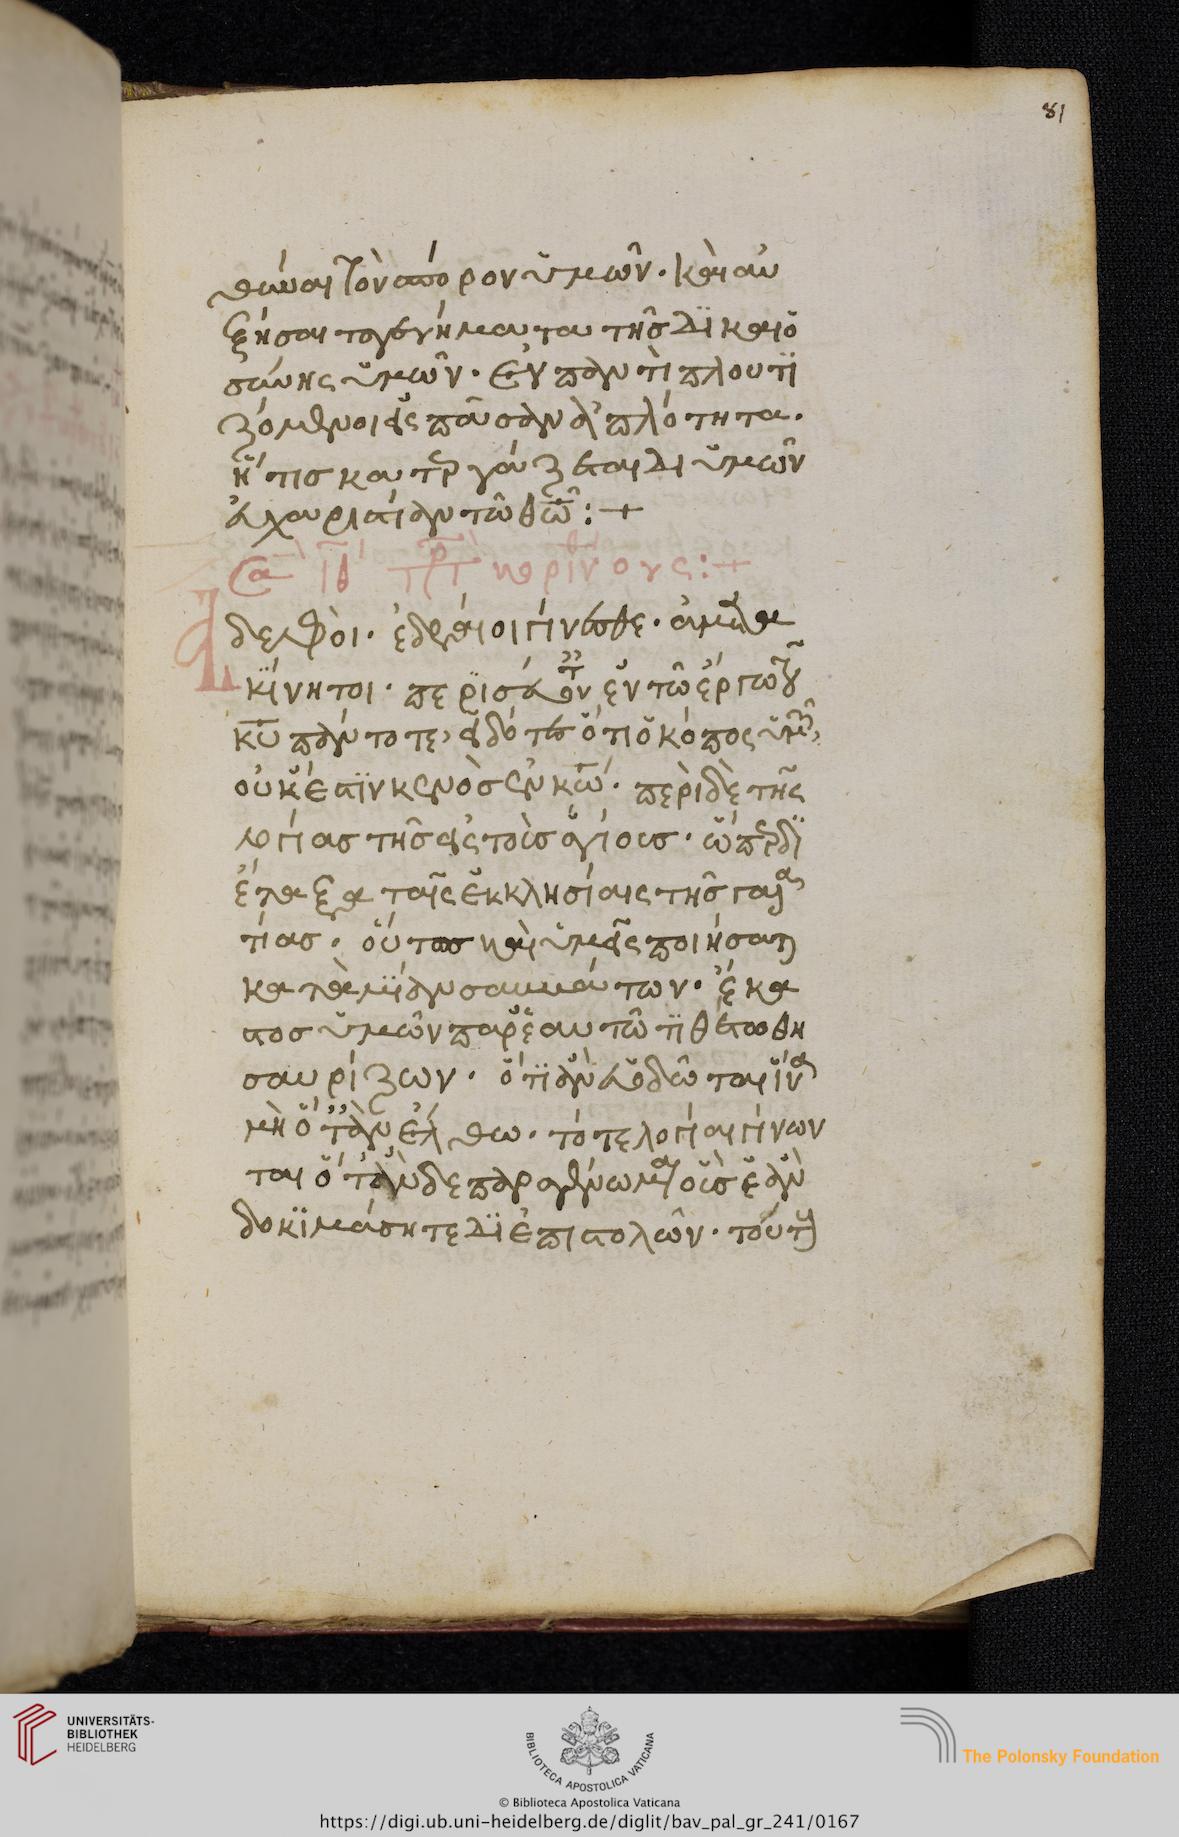 81
θύναι τὸν σπόρον ὑμῶν. καὶ αὐ
ξήσαι τα γενήματα τῆς δϊκαιο
σύνης ὑμῶν. ἐν παντὶ πλουτϊ
ζόμενοι εἰς πᾶσαν ἁπλότητα.
ἥτις κατεργάζεται δι ὑμῶν
εὐχαριστίαν τῶ θῶ:+
Σα ιβ πρ κορινθους:+
Αδελφοὶ. ἑδραῖοι γίνεσθε. ἀμετα
κϊνητοι. περϊσεύοντες ἐν τῶ ἔργω τοῦ
κῦ πάντοτε, εἰδότες ὅτι ὁ κόπος ὑμῶν,
οὐκ ἔστϊν κενὸς ἐν κῶ. περὶ δὲ τῆς
λογίας τῆς εἰς τοῖς ἁγίοις. ὥσπερ δϊ
έταξα ταῖς ἐκκλησίαις τῆς γαλα
τίας. οὕτως καὶ ὑμεῖς ποιήσατε
κατὰ μϊαν σαμμάτων. ἕκα
στος ὑμῶν παρ ἑαυτῶ τϊθέτω θη
σαυρίζων. ὅ τϊ ἂν εὐοδῶται ἵνα
μὴ ὅταν ἔλθω. τότε λογίαι γίνων
ται ὅταν δε παραγένωμαι οὓς ἐὰν
δοκϊμάσητε δϊ ἐπιστολῶν. τούτους
UNIVERSITÄTS-
BIBLIOTHEK
HEIDELBERG
BIBLIOTECA APOSTOLICA VATICANA
The Polonsky Foundation
© Biblioteca Apostolica Vaticana
https://digi.ub.uni-heidelberg.de/diglit/bav_pal_gr_241/0167